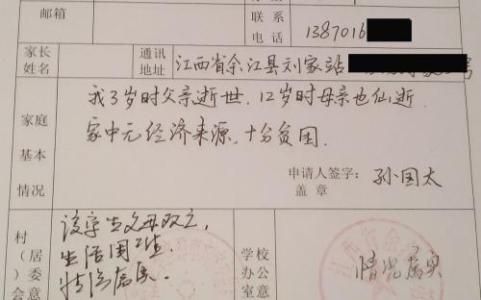 邮箱
联系
电话
1387016
家长
姓名
通讯
地址
江西省余江县刘家站
我3岁时父亲逝世，12岁时母亲也仙逝，
家中无经济来源，十分贫困。
家庭
基本
情况
申请人签字：孙国太
盖章
村
（居
）委
会意
该学生父母双亡，
生活困难，
情况属实。
学校
办公
室意
情况属实